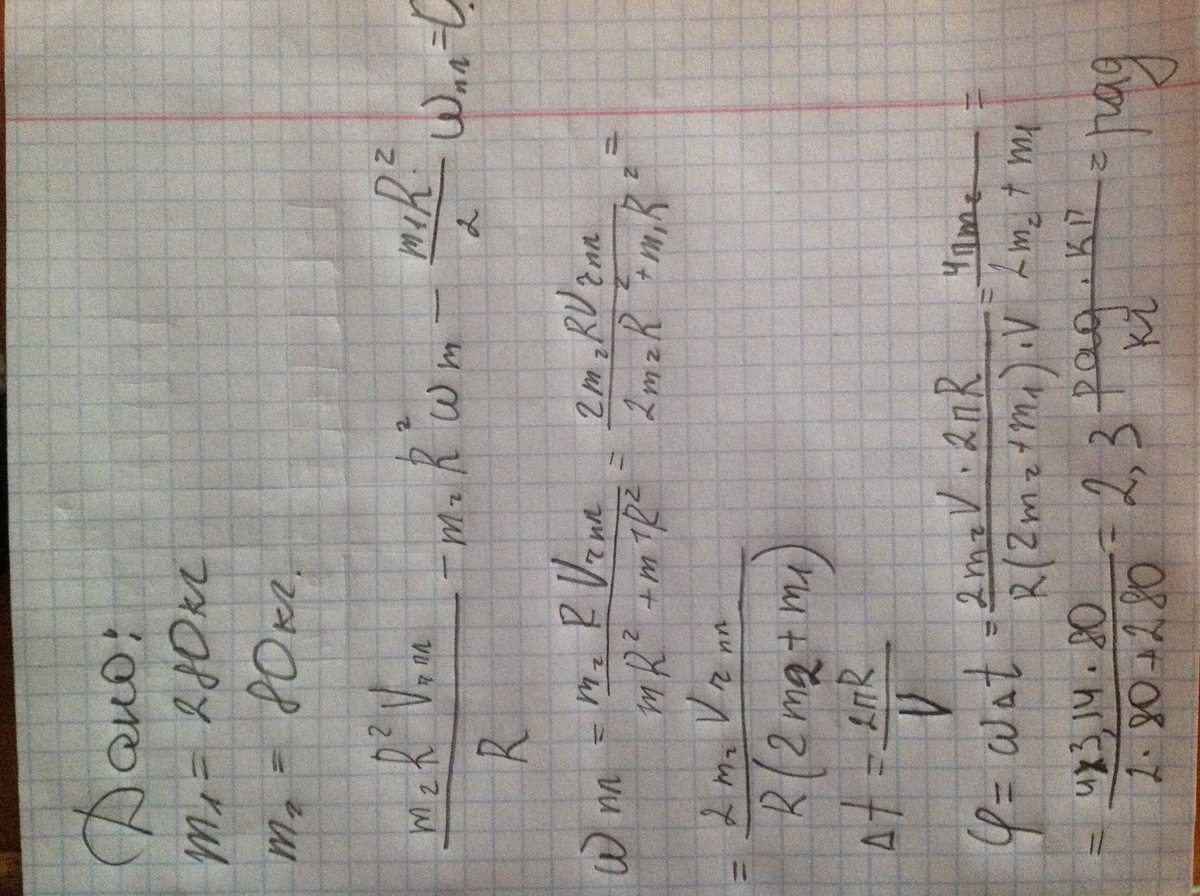 Дано:
m₁ = 280 кг
m₂ = 80 кг.
m₂R²Vч пл / R − m₂R²ωm − m1R² / 2 ωпл = 0.
ωпл = m₂ R Vч пл / mR² + m1R² = 2m₂RVч пл / 2m₂R² + m₁R² =
= 2 m₂ Vч пл / R(2m2 + m1)
Δt = 2πR / V
φ = ωΔt = 2m₂V · 2πR / R(2m₂ + m₁) · V = 4πm₂ / 2m₂ + m₁ =
= 4x3,14 · 80 / 2 · 80 + 280 = 2,3 рад · кг / кг = рад